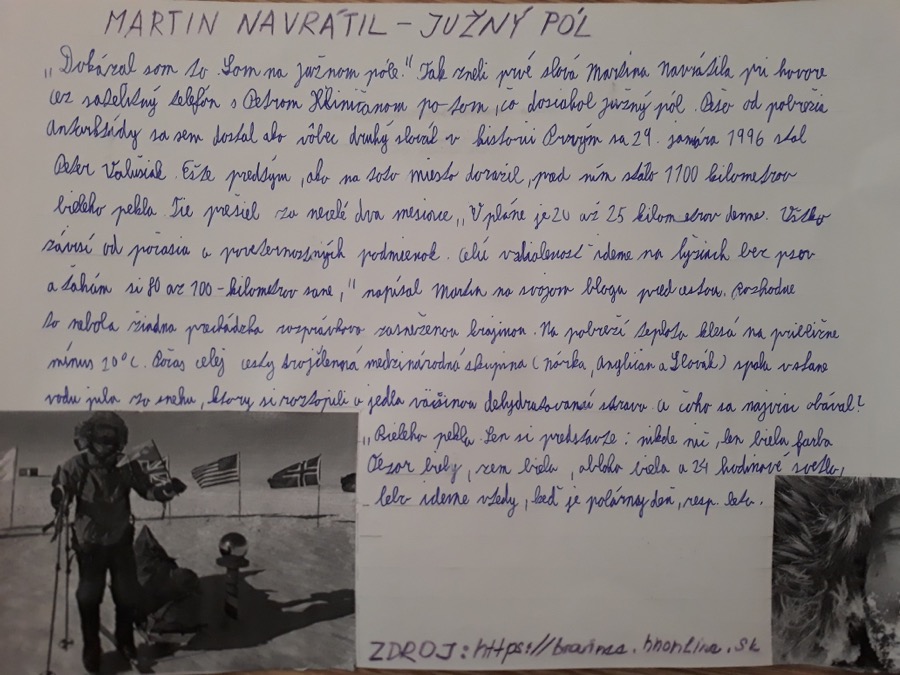 MARTIN NAVRÁTIL - JUŽNÝ PÓL
„Dokázal som to. Som na južnom póle." Tak zneli prvé slová Martina Navrátila pri hovore
cez satelitný telefón s Petrom po tom, čo dosiahol južný pól. Pešo od pobrežia
Antarktídy sa sem dostal ako vôbec druhý slovák v historii Prvým sa 29. januára 1996 stal
Peter Valušiak. Ešte predtým, ako na toto miesto dorazil, pred ním stálo 1100 kilometrov
bieleho pekla. Tie prešiel za necelé dva mesiace „V pláne je 20 až 25 kilometrov denne. Všetko
závisí od počasia a poveternostných podmienok. Celú vzdialenosť ideme na lyžiach bez psov
a ťahám si 80 až 100-kilometrov sane," napísal Martin na svojom blogu pred cestou. Rozhodne
to nebola žiadna prechádzka rozprávkovo zasneženou krajinou. Na pobreží teplota klesá na približne
mínus 20°C. Počas celej cesty trojčlenná medzinárodná skupina (Nórka, Angličan a Slovák) spala v stane
vodu pila zo snehu, ktorý si roztopili a jedla väčšinou dehydratovanú stravu. A čoho sa najviac obával?
„Bieleho pekla. Len si predstavte: nikde nič, len biela farba
biely, zem biela, obloha biela a 24 hodinové svetlo,
lebo ideme vtedy, keď je polárny deň, resp. leto.
ZDROJ: https://hnonline.sk